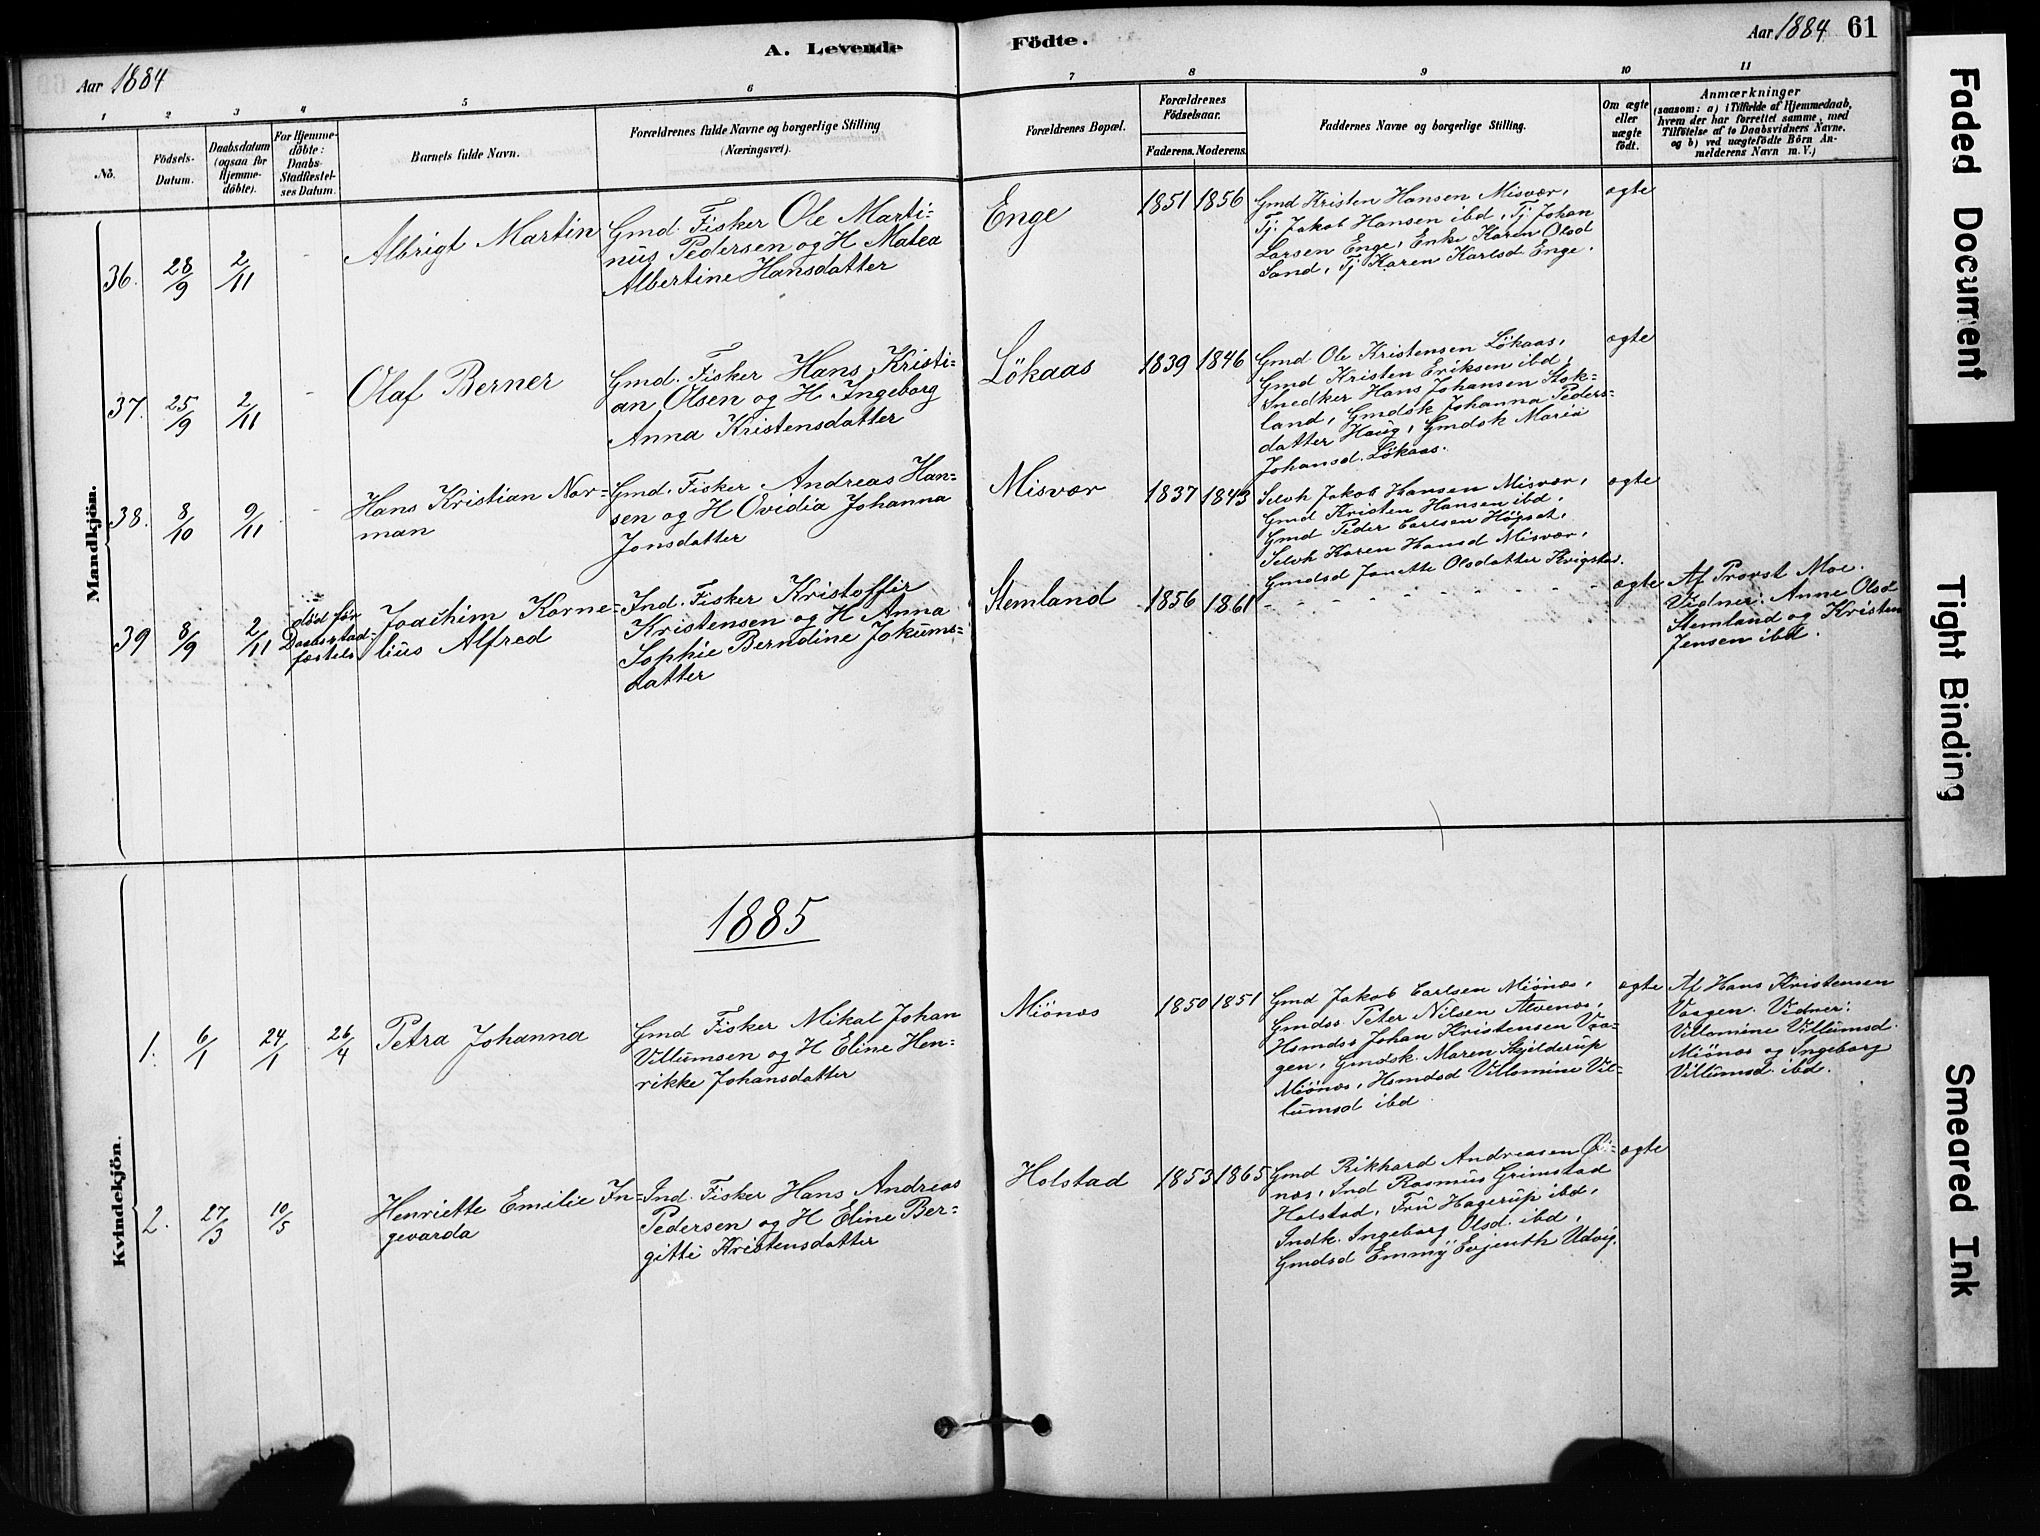 A. Levende Födte.
Aar 1884
Aar 1884 61
1 2 3 4 5 6 7 8 9 10 11
No.
Födsels-
Datum.
Daabsdatum
(ogsaa for
Hjemme-
döbte).
For Hjemme-
döbte:
Daabs-
Stadfæstel-
ses Datum.
Barnets fulde Navn.
Forældrenes fulde Navne og borgerlige Stilling
(Næringsvei).
Forældrenes Bopæl.
Forældrenes
Födselsaar.
Faderens. Moderens.
Faddernes Navne og borgerlige Stilling.
Om ægte
eller
uægte
födt.
Anmærkninger
(saasom: a) i Tilfælde af Hjemmedaab,
hvem der har forrettet samme, med
Tilföielse af to Daabsvidners Navne,
og b) ved uægtefödte Börn An-
melderens Navn m. V.)
Mandkjön.
36. 28/9 2/11 -
Albrigt Martin
Gmd. Fisker Ole Marti-
nus Pedersen og H Matea
Albertine Hansdatter
Enge
1851 1856
Gmd Kristen Hansen Misvær,
Tj. Jakob Hansen ibd, Tj Johan
Larsen Enge, Enke Karen Olsd
Sand, Tj Karen Karlsd Enge.
ægte
37. 25/9 2/11 -
Olaf Berner
Gmd. Fisker Hans Kristi-
an Olsen og H Ingeborg
Anna Kristensdatter
Lökaas
1839 1846
Gmd Ole Kristensen Lökaas,
Gmd Kristen Eriksen ibd,
Snedker Hans Johansen Stok-
land, Gmdsk Johanna Peders-
datter Haug, Gmdsk Maria
Johansd. Lökaas.
ægte
38. 8/10 9/11 -
Hans Kristian Nor-
man
Gmd. Fisker Andreas Han-
sen og H Ovidia Johanna
Jonsdatter
Misvær
1837 1843
Selvh Jakob Hansen Misvær,
Gmd Kristen Hansen ibd,
Gmd Peder Carlsen Högset,
Selvh Karen Hansd Misvær,
Gmdsd Janette Olsdatter Kvigstad.
ægte
39 8/9 2/11
död før
Daabsstad-
fæstels
Joachim Korne-
lius Alfred
Ind. Fisker Kristoffer
Kristensen og H Anna
Sophie Berndine Jokums-
datter
Stemland
1856 1861
- - - - - - - -
ægte
Af Provst Moe.
Vidner: Anne Olsd
Stemland og Kristen
Jensen ibd.
1885
Kvindekjön.
1. 6/1 24/1 26/4
Petra Johanna
Gmd Fisker Mikal Johan
Villumsen og H Eline Hen-
rikke Johansdatter
Miönes
1850 1851
Gmd Jakob Carlsen Miönes,
Gmdss Peter Nilsen Alvenes,
Hsmdss Johan Kristensen Vaa-
gen, Gmdsk. Maren Skjelderup
Miönes, Hsmdsd Villomine Vil-
lumsd ibd
ægte
Af Hans Kristensen
Vaagen. Vidner:
Villomine Villumsd.
Miönes og Ingeborg
Villumsd. ibd.
2. 27/3 10/5
Henriette Emilie In-
gevarda
Ind. Fisker Hans Andreas
Pedersen og H Eline Ber-
gitte Kristensdatter
Holstad
1853 1865
Gmd Rikhard Andreasen Öi-
nes, Ind Rasmus Grimstad
Holstad, Fru Hagerup ibd,
Indk. Ingeborg Olsd. ibd,
Gmdsd Emmy Evjenth Udvig.
ægte
Faded Document
Tight Binding
Smeared Ink